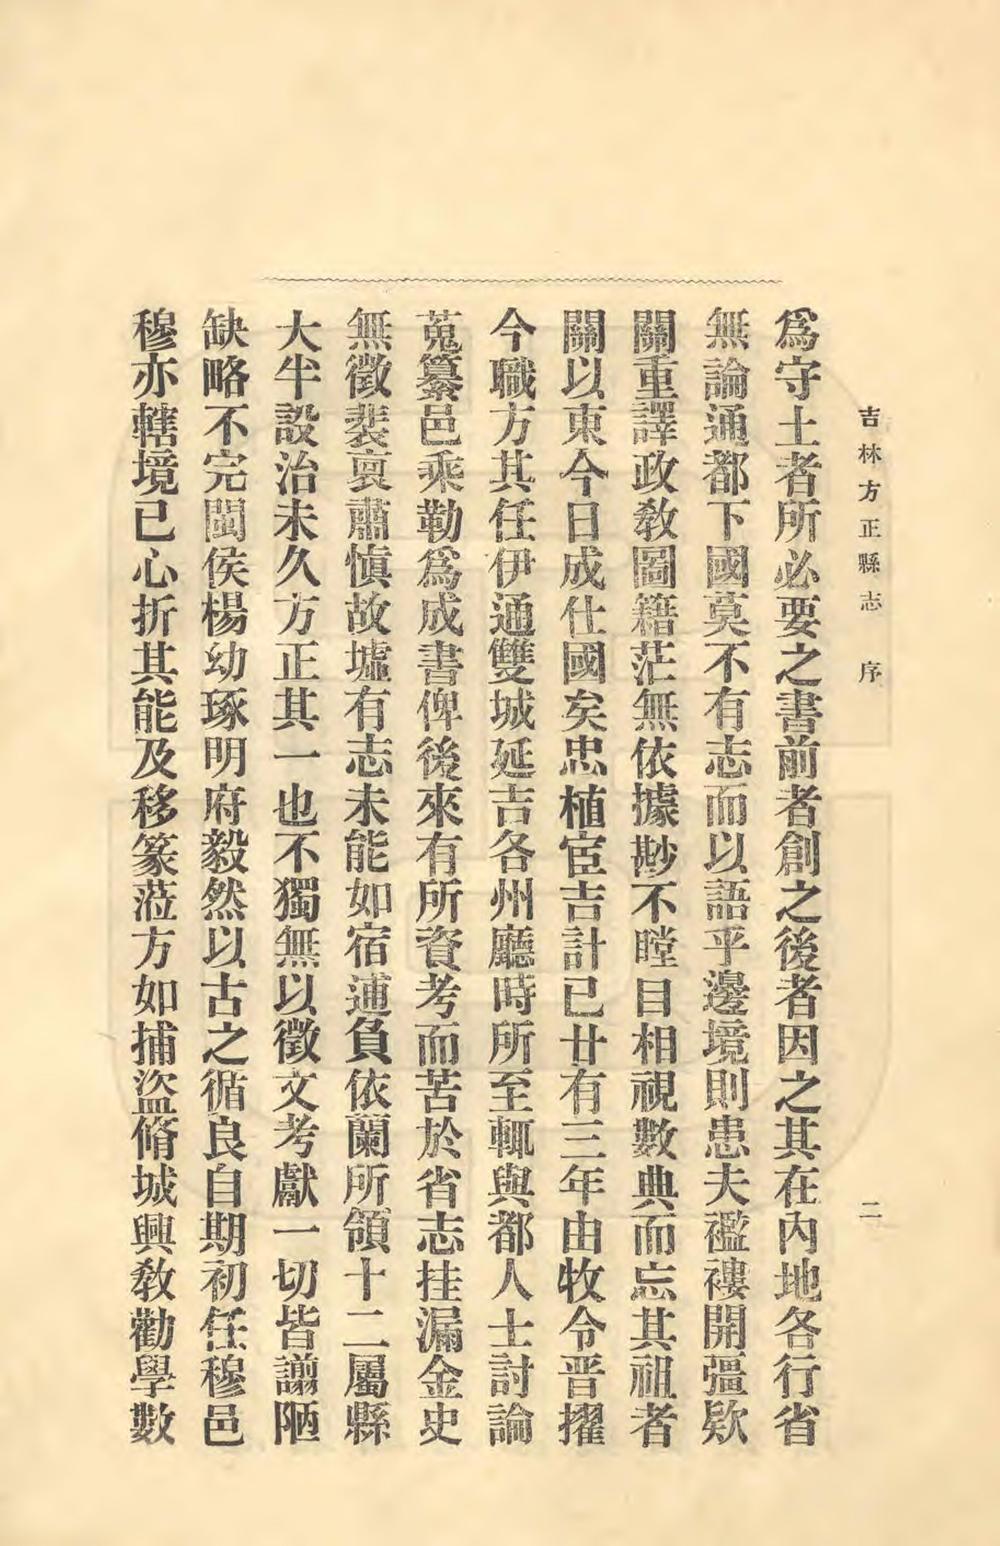 吉林方正縣志 序 二
爲守土者所必要之書前者創之後者因之其在內地各行省
無論通都下國莫不有志而以語乎邊境則患夫襤褸開彊欵
關重譯政敎圖籍茫無依據尠不瞠目相視數典而忘其祖者
關以東今日成仕國矣忠植宦吉計已廿有三年由牧令晋擢
今職方其任伊通雙城延吉各州廳時所至輒與都人士討論
蒐纂邑乘勒爲成書俾後來有所資考而苦於省志挂漏金史
無徵裴裒肅愼故墟有志未能如宿逋負依蘭所領十二屬縣
大半設治未久方正其一也不獨無以徵文考獻一切皆謭陋
缺略不完閩侯楊幼琢明府毅然以古之循良自期初任穆邑
穆亦轄境已心折其能及移篆蒞方如捕盜脩城興敎勸學數